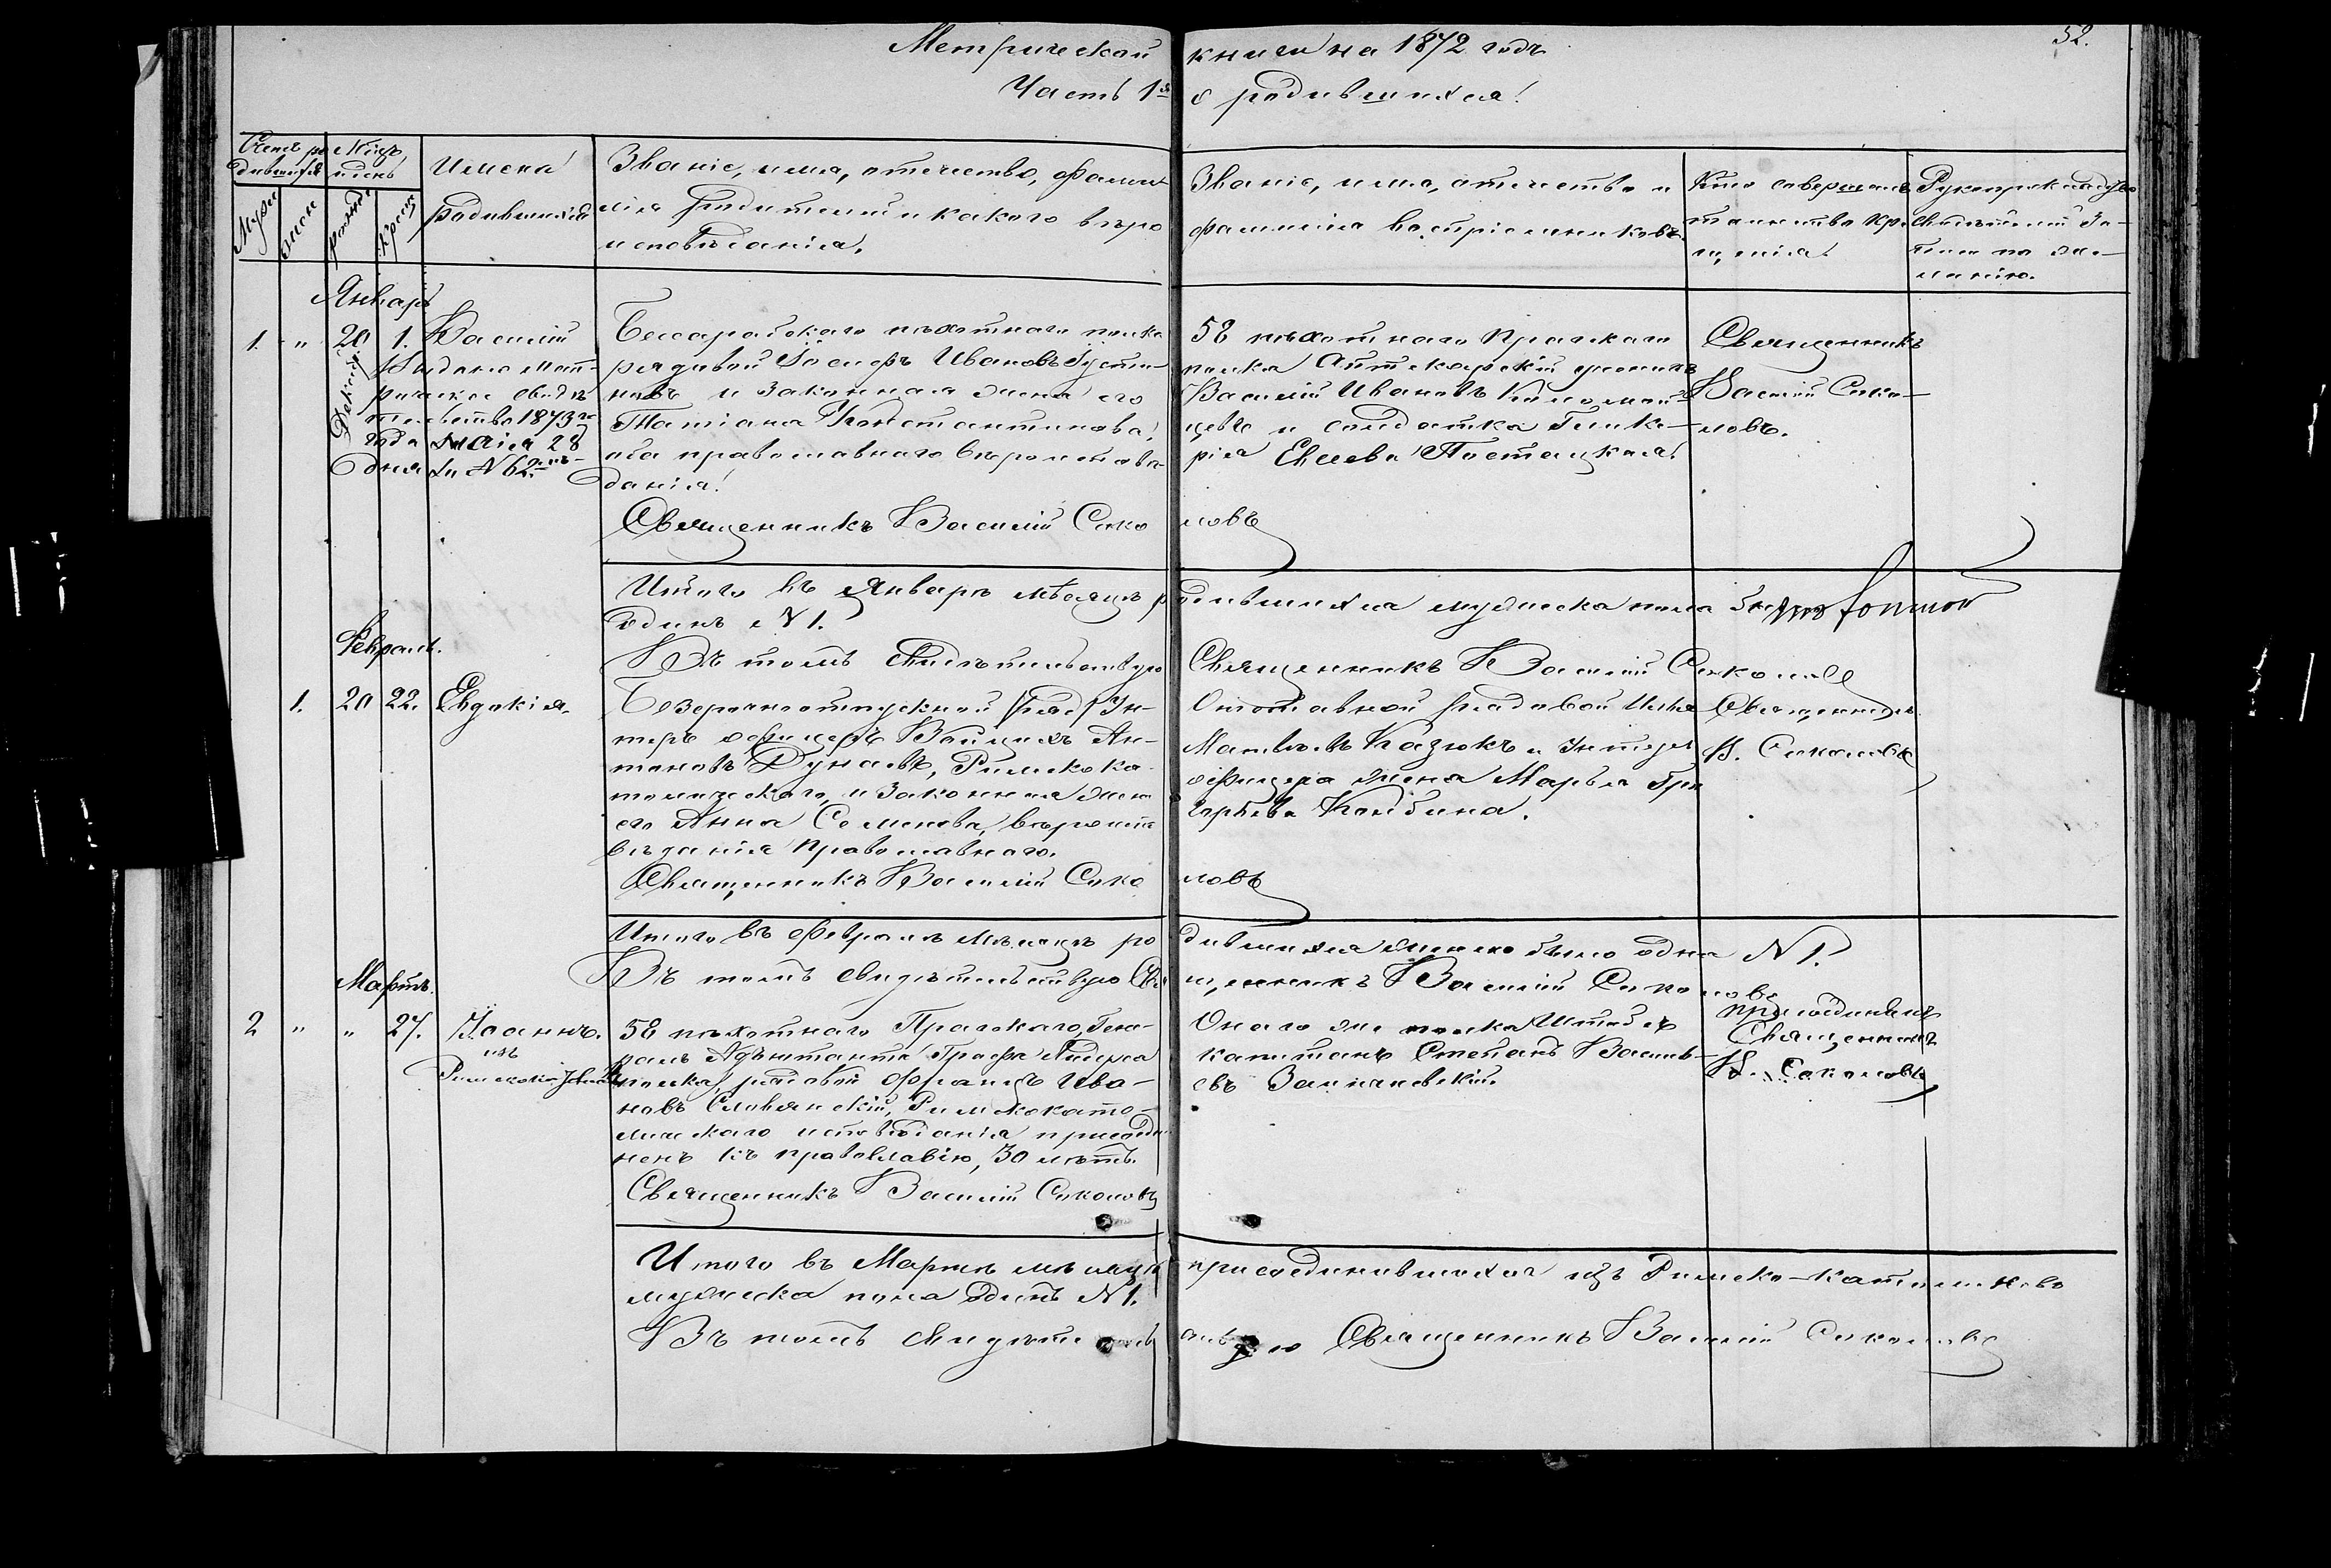 52.
Метрической книги на 1872 годъ
Часть 1я о родившихся.
Счетъ ро
дившихся
Муж
жен
Мѣсяцъ
и день
рожд
крещ
Имена
родившихся
Званіе, имя, отечество, фами-
лія родителей и какого вѣро
исповѣданія.
Званіе, имя, отечество и
фамилія воспріемниковъ.
Кто совершалъ
таинство кре-
щенія.
Рукоприкладство
свидѣтелей за-
писи по же-
ланію.
Январь
1. " 20 1. Василій
Декабря
Выдано мет-
рическое свидѣ-
тельство 1873го
года Мая 28
дня за № 62.
Бессарабскаго пѣхотнаго полка
рядовой Іосифъ Ивановъ Густи-
новъ и законная жена его
Татіана Константинова,
оба православнаго вѣроисповѣ-
данія.
Священникъ Василій Соколовъ
58 пѣхотнаго Прагскаго
полка Аптекарскій ученикъ
Василій Ивановъ
и солдатка Глике-
рія Евсева
Священникъ
Василій Соко-
ловъ.
Итого въ Январѣ мѣсяцѣ родившихся мужеска пола
одинъ №1.
Въ томъ свидѣтельствую Священникъ Василій Соколовъ
Февраль.
1. 20 22. Евдокія.
Безсрочноотпускной Ун-
теръ офицеръ Войцехъ Ан-
тоновъ Дунаевъ, Римскока-
толическаго, и законная жена
его Анна Семенова, вѣроиспо
вѣданія православнаго.
Священникъ Василій Соколовъ
Отставной рядовой Илья
Матвѣевъ Казюкъ и Унтеръ
офицера жена Марья Гри
горьева Колбина.
Священникъ
В. Соколовъ
Итого въ Февралѣ мѣсяцѣ родившихся женско было одна №1.
Въ томъ свидѣтельствую Священникъ Василій Соколовъ
Мартъ.
2 " " 27. Іоаннъ.
изъ
58 пѣхотнаго Прагскаго, Гене-
ралъ Адъютанта Графа Лидерса
полка, рядовой Францъ Ива-
новъ Словянскій, Римскокато-
лическаго исповѣданія присоеди
ненъ къ православію, 30 лѣтъ.
Священникъ Василій Соколовъ
Онаго же полка Штабсъ
капитанъ Степанъ Василь-
евъ
присоединялъ
Священникъ
В. Соколовъ
Итого въ Мартѣ мѣсяцѣ присоединившихся изъ Римско-католиковъ
мужеска пола одинъ №1.
Въ томъ свидѣтельствую Священникъ Василій Соколовъ